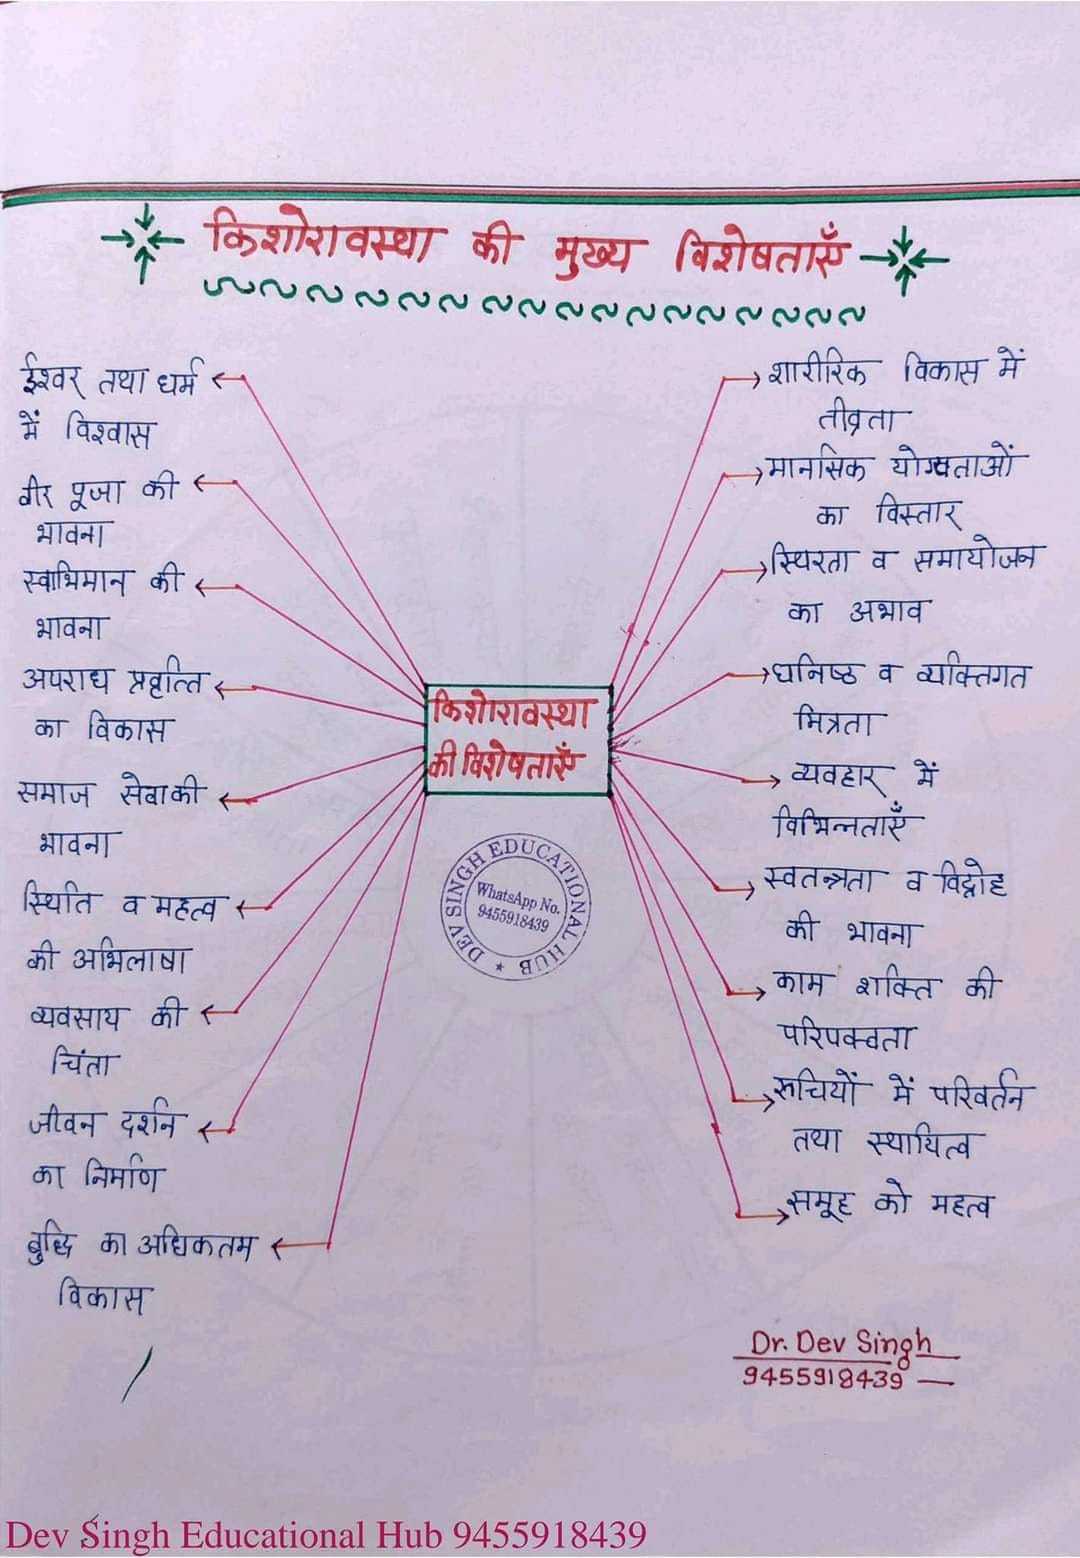 किशोरावस्था की मुख्य विशेषताएँ
ईश्वर तथा धर्म
में विश्वास
वीर पूजा की
भावना
स्वाभिमान की
भावना
अपराध प्रवृत्ति
का विकास
समाज सेवा की
भावना
स्थिति व महत्व
की अभिलाषा
व्यवसाय की
चिंता
जीवन दर्शन
का निर्माण
बुद्धि का अधिकतम
विकास
किशोरावस्था
की विशेषताएँ
DEV SINGH EDUCATIONAL HUB
WhatsApp No.
9455918439
शारीरिक विकास में
तीव्रता
मानसिक योग्यताओं
का विस्तार
स्थिरता व समायोजन
का अभाव
घनिष्ठ व व्यक्तिगत
मित्रता
व्यवहार में
विभिन्नताएँ
स्वतन्त्रता व विद्रोह
की भावना
काम शक्ति की
परिपक्वता
रुचियों में परिवर्तन
तथा स्थायित्व
समूह को महत्व
Dr. Dev Singh
9455918439
Dev Singh Educational Hub 9455918439